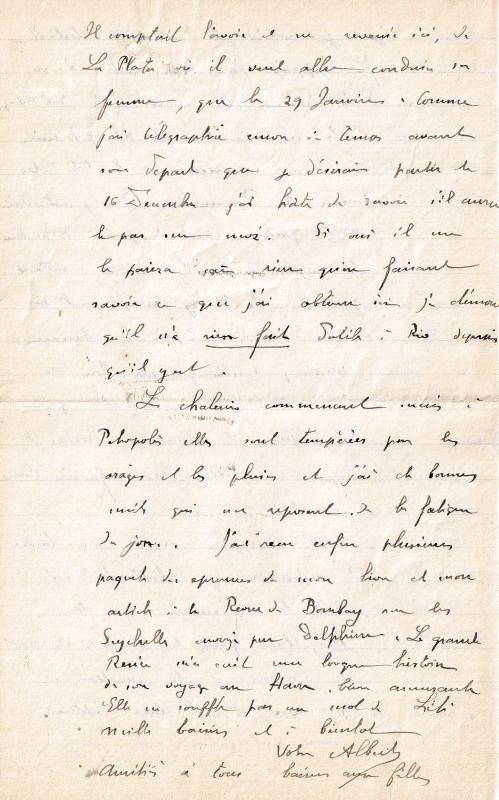 Il comptait l'avoir et ne revenir ici, de
La Plata où il veut aller conduire sa
femme, que le 29 Janvier. Comme
j'ai télégraphié encore à temps avant
son départ que je désirais partir le
16 Décembre j'ai hâte de savoir s'il aura
le pas sur moi. Si oui il me
le paiera rien qu'en faisant
savoir ce que j'ai obtenu ici je démon
qu'il n'a rien fait d'utile à Rio depuis
qu'il y est.
Les chaleurs commencent mais à
Petropolis elles sont tempérées par les
orages et les pluies et j'ai de bonnes
nuits qui me reposent de la fatigue
du jour. J'ai reçu enfin plusieurs
paquets des épreuves de mon livre et mon
article à la Revue de Bombay sur les
Seychelles envoyé par Delphine. La grande
Renée m'a écrit une longue histoire
de son voyage au Havre, bien amusante
Elle ne souffle pas un mot de Lili
Mille baisers et à bientôt
Votre Albert
Amitiés à tous baisers aux filles